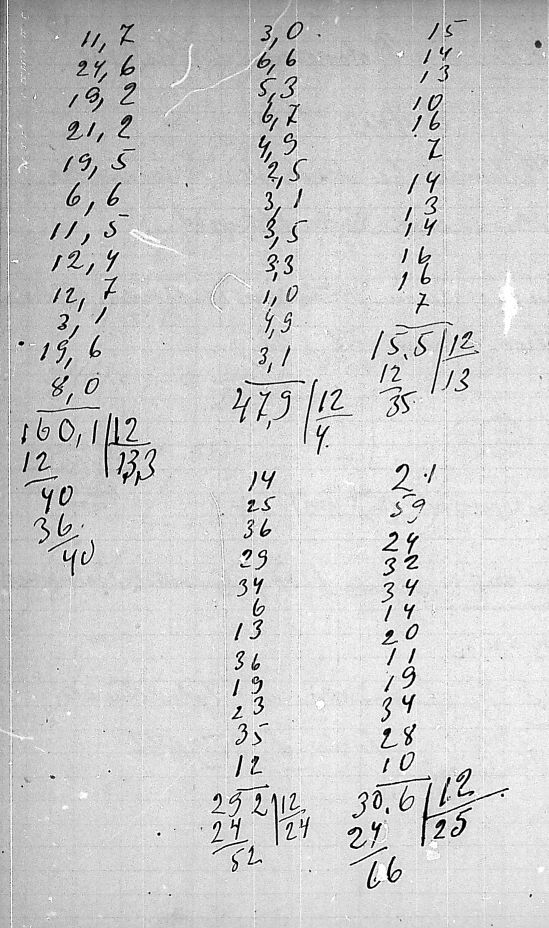 11,7
24,6
19,2
21,2
19,5
6,6
11,5
12,4
12,7
3,1
19,6
8,0
160,1 12
12 13,3
40
36
40
3,0
6,6
5,3
6,7
4,9
2,5
3,1
3,5
3,3
1,0
4,9
3,1
47,9 12
4
15
14
13
10
16
7
14
13
14
16
16
7
15.5 12
12 13
35
14
25
36
29
34
6
13
36
19
23
35
12
292 12
24 24
52
21
59
24
32
34
14
20
11
19
34
28
10
30.6 12
24 25
66